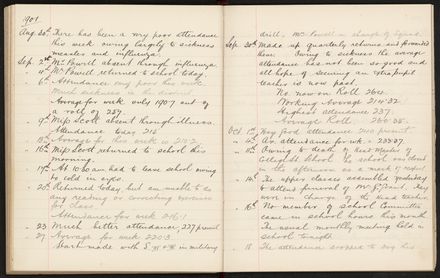 1901.
Aug. 30th There has been a very poor attendance
this week owing largely to sickness
measles and influenza.
Sep. 2nd Mr Powell absent through influenza.
" 4th Mr Powell returned to school today.
" 6th Attendance very poor this week.
Much sickness in the district
Average for week only 190.7 out of
a roll of 257.
" 9th Miss Scott absent through illness.
Attendance today 216
" 13th Average for this week is 212.2
" 16th Miss Scott returned to school this
morning.
" 19th At 10.30 am had to leave school owing
to cold in eyes.
" 20th Returned today but am unable to do
any reading or correcting exercises
in class
Attendance for week 216.1
" 23 Much better attendance, 227 present
" 27 Average for week 220.3
Start made with S. and in military
drill. Mr Powell in charge of
Sep. 30th Made up quarterly returns and forwarded
them. Owing to sickness the average
attendance has not been so good and
all hope of securing an extra pupil
teacher is now past.
No now on Roll 264.
Working Average 214.32
Highest attendance 237
Average Roll
Oct 1st Very good attendance 240 present.
" 4th Av. attendance for wk.
" 8th Owing to death of Head Master of
School the school was closed
in the afternoon as a mark of respect
" 14th The upper classes assembled yesterday
to attend funeral of Mr They
were in charge of the Head teacher
" 16th No member of School Committee
came in school hours this month
The usual monthly meeting held in
school tonight.
" 18 The attendance dropped to day